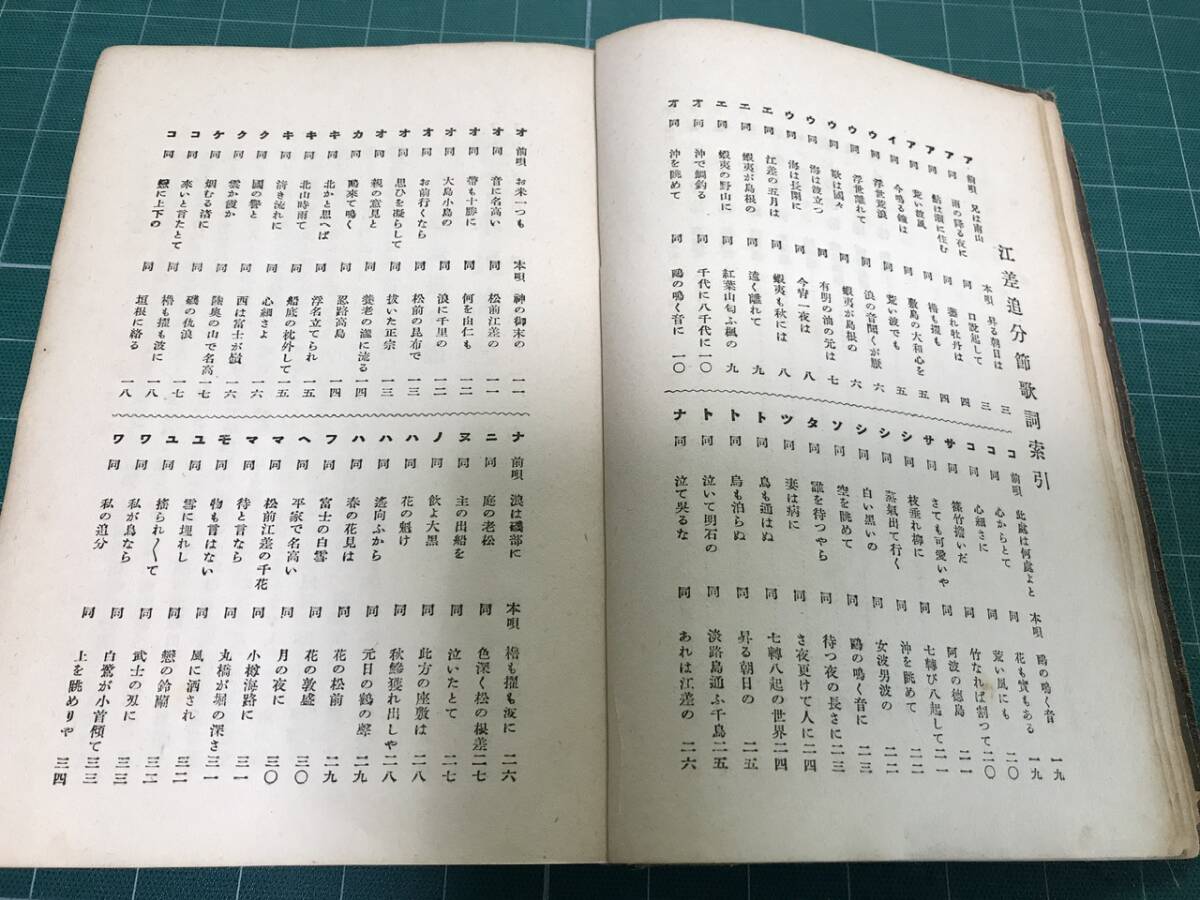 江差追分節歌詞索引
ア 前唄 兄は南山 本唄 昇る朝日は 三
ア 同 雨の降る夜に 同 口説起して 三
ア 同 鮎は瀬に住む 同 牡丹は 四
ア 同 荒い波風 同 櫓も擢も 四
イ 同 今鳴る鐘は 同 敷島の大和心を 五
ウ 同 浮世荒浪 同 荒い波でも 五
ウ 同 浮世離れて 同 浪の音聞くが厭 六
ウ 同 歌は國々 同 蝦夷が島根の 六
ウ 同 海は波立つ 同 有明の油の元は 七
ウ 同 海は長閑に 同 今宵一夜は 八
エ 同 江差の五月は 同 蝦夷も秋には 八
エ 同 蝦夷が島根の 同 遠く離れて 九
エ 同 蝦夷の野山に 同 紅葉山匂ふ楓の 九
オ 同 沖で鯛釣る 同 千代に八千代に 一〇
オ 同 沖を眺めて 同 鴎の鳴く音に 一〇
コ 前唄 此處は何處よと 本唄 鴎の鳴く音 一九
コ 同 心からとて 同 花も實もある 一九
コ 同 心細さに 同 荒い風にも 二〇
サ 同 篠竹擔いだ 同 竹なれば割つて 二〇
サ 同 さても可愛いや 同 阿波の徳島 二一
シ 同 枝垂れ柳に 同 七轉び八起して 二一
シ 同 蒸氣出て行く 同 沖を眺めて 二二
シ 同 白い黒いの 同 女波男波の 二二
ソ 同 空を眺めて 同 鴎の鳴く音に 二三
タ 同 誰を待つやら 同 待つ夜の長さに 二三
ツ 同 妻は病に 同 さ夜更けて人に 二四
ト 同 鳥も通はぬ 同 七轉八起の世界 二四
ト 同 鳥も泊らぬ 同 昇る朝日の 二五
ト 同 泣いて明石の 同 淡路島通ふ千鳥 二五
ナ 同 泣て呉るな 同 あれは江差の 二六
オ 前唄 お末一つも 本唄 神の御末の 一一
オ 同 音に名高い 同 松前江差の 一一
オ 同 帶も十勝に 同 何を由仁も 一二
オ 同 大島小島の 同 浪に千里の 一二
オ 同 お前行くなら 同 松前の昆布で 一三
オ 同 思ひを凝らして 同 抜いた正宗 一三
オ 同 親の意見と 同 養老の瀧に流る 一四
カ 同 鴎來て鳴く 同 忍路高島 一四
キ 同 北かと思へば 同 浮名立てられ 一五
キ 同 北山時雨て 同 船底の枕外して 一五
キ 同 清き流れに 同 心細さよ 一六
ク 同 國の譽と 同 西は富士が嶺 一六
ク 同 雲か霞か 同 陸奥の山で名高 一六
ケ 同 烟むる渚に 同 磯の仇浪 一七
コ 同 來いと言たとて 同 櫓も擢も波に 一七
コ 同 に上下の 同 垣根に絡る 一八
ナ 前唄 浪は磯部に 本唄 櫓も擢も波に 二六
ニ 同 庭の老松 同 色深く松の根差 二七
ヌ 同 主の出船を 同 泣いたとて 二七
ノ 同 飲よ大黒 同 此方の座敷は 二八
ハ 同 花の魁け 同 秋鰺獲れ出しや 二八
ハ 同 遙向ふから 同 元日の鶴の聲 二九
ハ 同 春の花見は 同 花の松前 二九
フ 同 富士の白雪 同 花の敦盛 三〇
ヘ 同 平家で名高い 同 月の夜に 三〇
マ 同 松前江差の千花 同 小樽海路に 三一
マ 同 待と言なら 同 丸橋が堀の深さ 三一
モ 同 物も言はない 同 風に洒され 三二
ユ 同 雪に埋れし 同 戀の鈴 三二
ユ 同 搖られ〱て 同 武士の刃に 三三
ワ 同 私が鳥なら 同 白鷺が小首傾て 三三
ワ 同 私の追分 同 上を眺めりや 三四